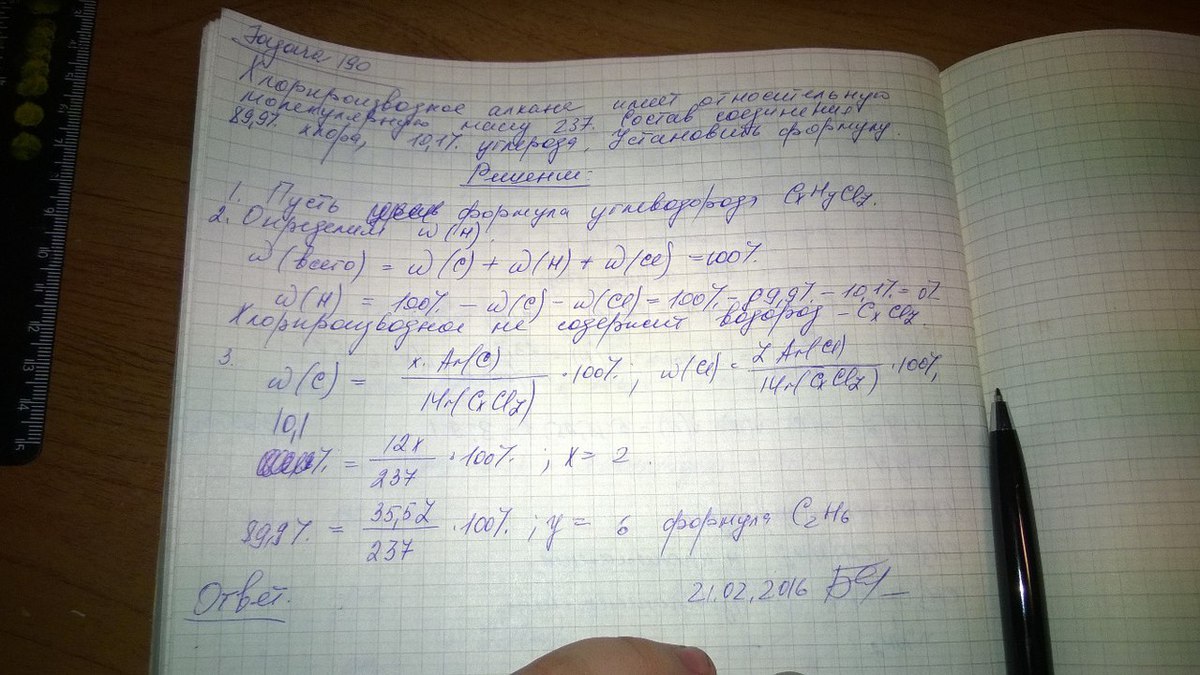 Задача 190
Хлорпроизводное алкана имеет относительную
молекулярную массу 237. Состав соединения
89,9% хлора, 10,1% углерода. Установить формулу.
Решение:
1. Пусть формула углеводорода CxHyClz.
2. Определим w(H).
w(всего) = w(C) + w(H) + w(Cl) = 100%.
w(H) = 100% - w(C) - w(Cl) = 100% - 89,9% - 10,1% = 0%
Хлорпроизводное не содержит водород - CxClz.
3. w(C) = x · Ar(C) / Mr(CxClz) · 100% ; w(Cl) = z Ar(Cl) / Mr(CxClz) · 100%,
10,1
% = 12x / 237 · 100% ; x = 2.
89,9% = 35,5z / 237 · 100% ; y = 6 формула C2H6
Ответ.
21.02.2016
15
14
13
12
11
10
9